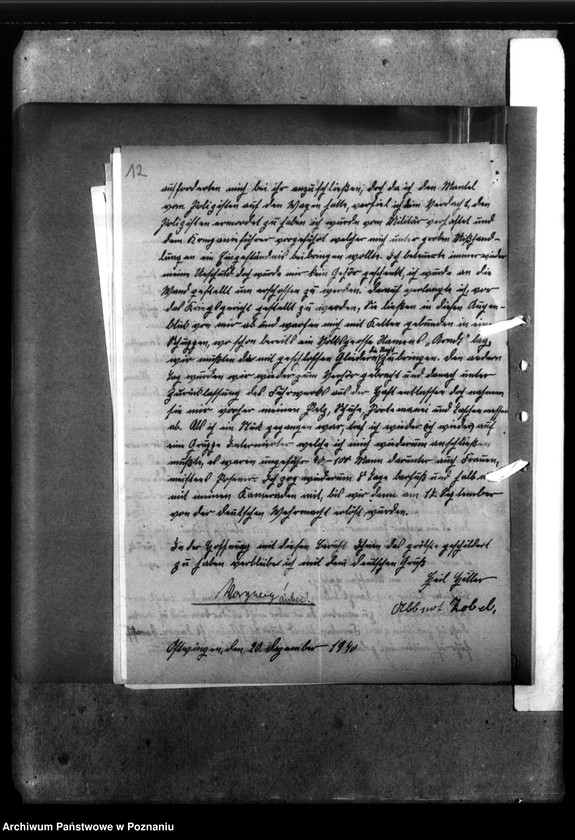 12
aufforderten mich bei ihr anzuschließen, doch da ich den Mantel
vom Polizisten auf den Wagen hatte, verfiel ich dem Verdacht, den
Polizisten ermordet zu haben ich wurde vom Militär verhaftet und
dem Kompanieführer vorgeführt welcher mich unter groben Mißhand-
lungen ein Eingeständnis beibringen wollte. Ich beteuerte immer wieder
meine Unschuld doch wurde mir kein Gehör geschenkt, ich wurde an die
Wand gestellt um erschossen zu werden. Darauf verlangte ich, vor
das Kriegsgericht gestellt zu werden, Sie ließen in diesen Augen-
blick von mir ab und warfen mich mit Ketten gebunden in einen
Schuppen, wo schon bereits ein Volksgenosse Namens "Arndt" lag,
wir mußten da mit geschlossenen Gliedern die Nacht zubringen. Den andern
Tag wurden wir wieder zum Verhör gebracht und danach unter
Zurücklassung des Fuhrwerks aus der Haft entlassen doch nahmen
sie mir vorher meinen Pelz, Schuhe, Portemonei und Taschenmesser
ab. Als ich ein Stück gegangen war, traf ich wieder auf
eine Gruppe Internierter welche ich mich wiederum anschließen
mußte, es waren ungefähr 90-100 Mann darunter auch Frauen,
meistens Posener. Ich zog wiederum 8 Tage barfuß und halb
mit meinen Kameraden mit, bis wir dann am 17. September
von der deutschen Wehrmacht erlöst wurden.
In der Hoffnung mit diesen Bericht Ihnen das größte geschildert
zu haben verbleibe ich mit dem deutschen Gruß
Heil Hitler
Zobel.
den 20. Dezember 1940
Archiwum Państwowe w Poznaniu